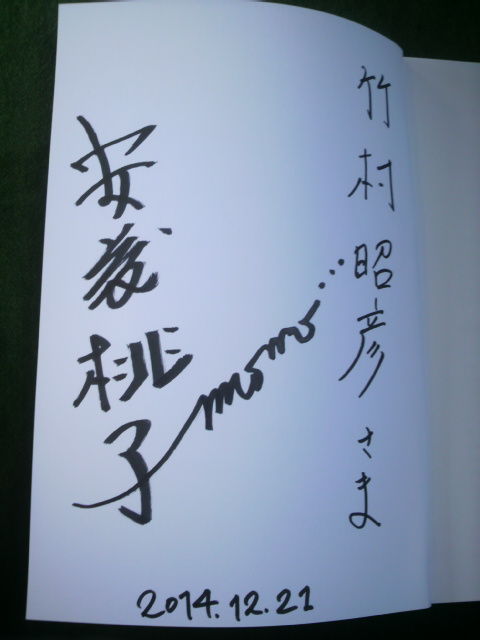 竹村昭彦さま
安藤桃子
momo...
2014.12.21